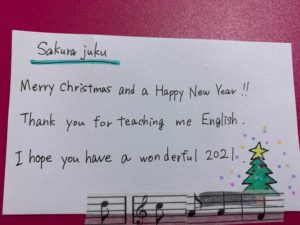 Sakura juku
Merry Christmas and a Happy New Year !!
Thank you for teaching me English.
I hope you have a wonderful 2021